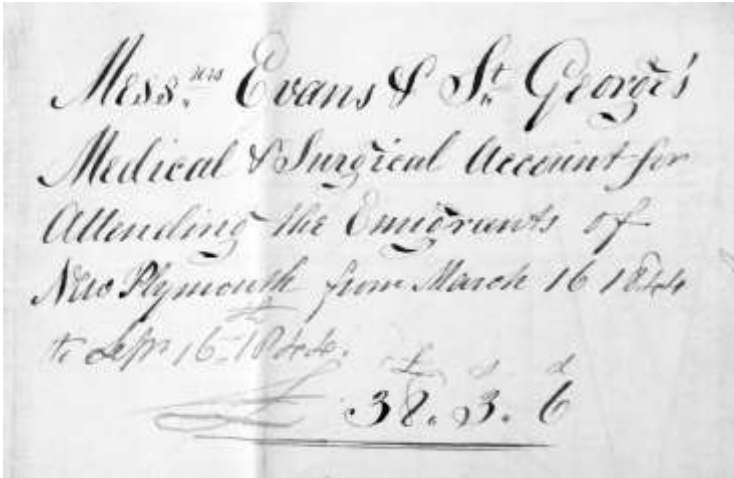 Mess.rs Evans & St. George's
Medical & Surgical Account for
Attending the Emigrants of
New Plymouth from March 16 1844
to Sepr 16th 1844.
£ s d
£ 38. 3. 6